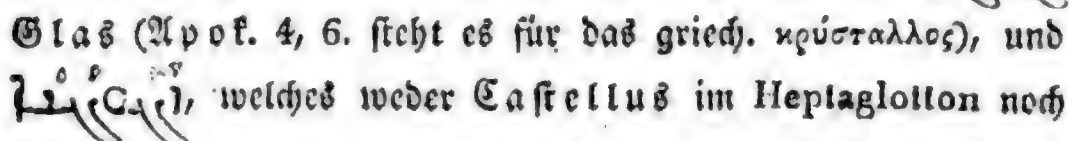 Glas (Apok. 4, 6. steht es für das griech. κρύσταλλος), und
welches weder Castellus im Heptaglotton noch